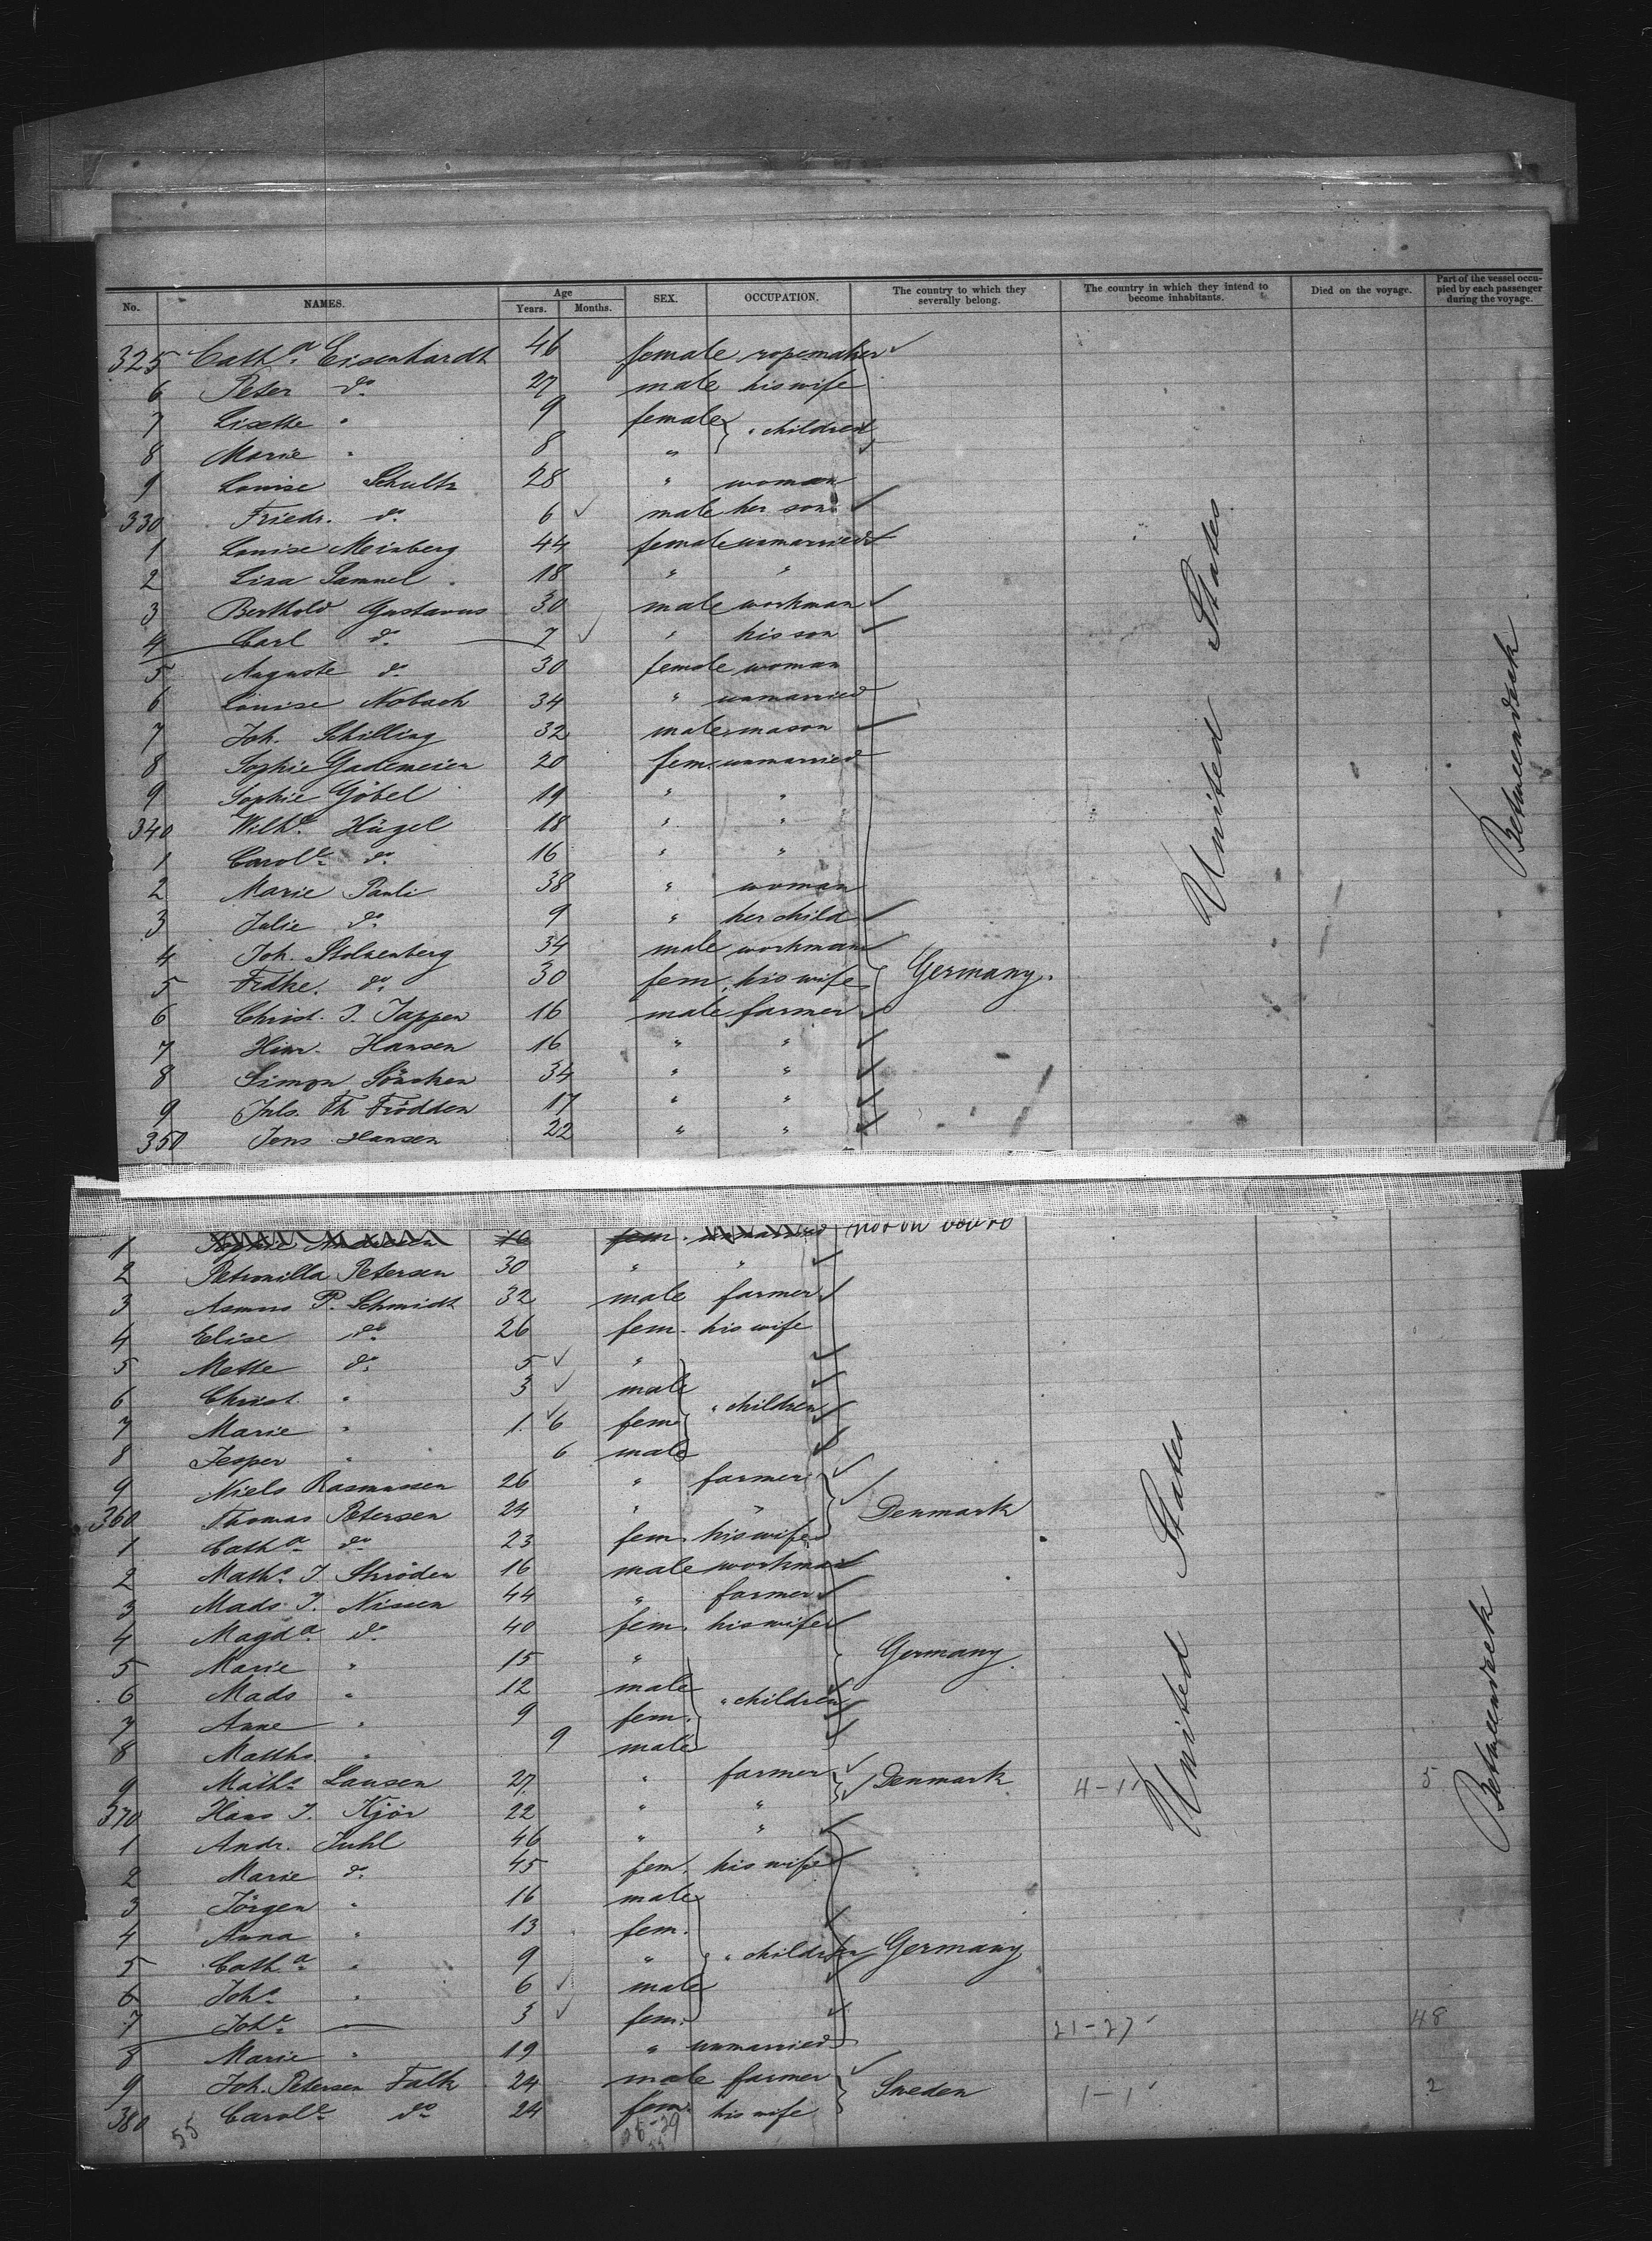 No. NAMES. Age Years. Months. SEX. OCCUPATION. The country to which they severally belong. The country in which they intend to become inhabitants. Died on the voyage. Part of the vessel occupied by each passenger during the voyage.
325 Cath.a Eisenhardt 46 female ropemaker
6 Peter do. 27 male his wife
7 Lisette " 9 female
8 Marie " 8 " " children
9 Louise Schultz 28 " woman
330 Friedr. do. 6 male her son
1 Louise Meinberg 44 female unmarried
2 Lisa Samuel 18 " "
3 Berthold Gustavus 30 male workman
4 Carl do. 7 " his son
5 Auguste do. 30 female woman
6 Louise Nobach 34 " unmarried
7 Joh. Schilling 32 male mason
8 Sophie Gademeier 20 fem. unmarried
9 Sophie Göbel 19 " "
340 Wilh.e Hügel 18 " "
1 Carol.e do. 16 " "
2 Marie Pauli 38 " woman
3 Julie do. 9 " her child
4 Joh. Stolzenberg 34 male workman
5 Fritze. do. 30 fem. his wife Germany.
6 Christ. J. Jappen 16 male farmer
7 Hinr. Hansen 16 " "
8 Simon Sönchen 34 " "
9 Juls. Th Frödden 17 " "
350 Jens Hansen 22 " "
United States
Betweendeck
1 Sophie Andresen 16 fem. unmarried not on board
2 Petronilla Petersen 30 " "
3 Asmus P. Schmidt 32 male farmer
4 Elise do. 26 fem. his wife
5 Mette do. 5 "
6 Christ. " 3 male " children
7 Marie " 1. 6 fem.
8 Jesper " 6 male
9 Niels Rasmussen 26 " farmer
360 Thomas Petersen 24 " " Denmark
1 Cath.a do. 23 fem. his wife
2 Math.s J Shröder 16 male workman
3 Mads J. Nissen 44 " farmer
4 Magd.a do. 40 fem. his wife
5 Marie " 15 " Germany.
6 Mads " 12 male " children
7 Anne " 9 fem.
8 Matths. " 9 male
9 Math.s Lausen 27. " farmer Denmark 4-1 5
370 Hans J. Kjör 22 " "
1 Andr. Juhl 46 " "
2 Marie do. 45 fem. his wife
3 Jörgen " 16 male
4 Anna " 13 fem.
5 Cath.a " 9 " " children Germany
6 Joh.s " 6 male
7 Joh.e 3 fem. 21-27 48
8 Marie " 19 " unmarried
9 Joh. Petersen Falk 24 male farmer
380 Carol.e do. 24 fem. his wife Sweden 1-1 2
United States
Betweendeck
55